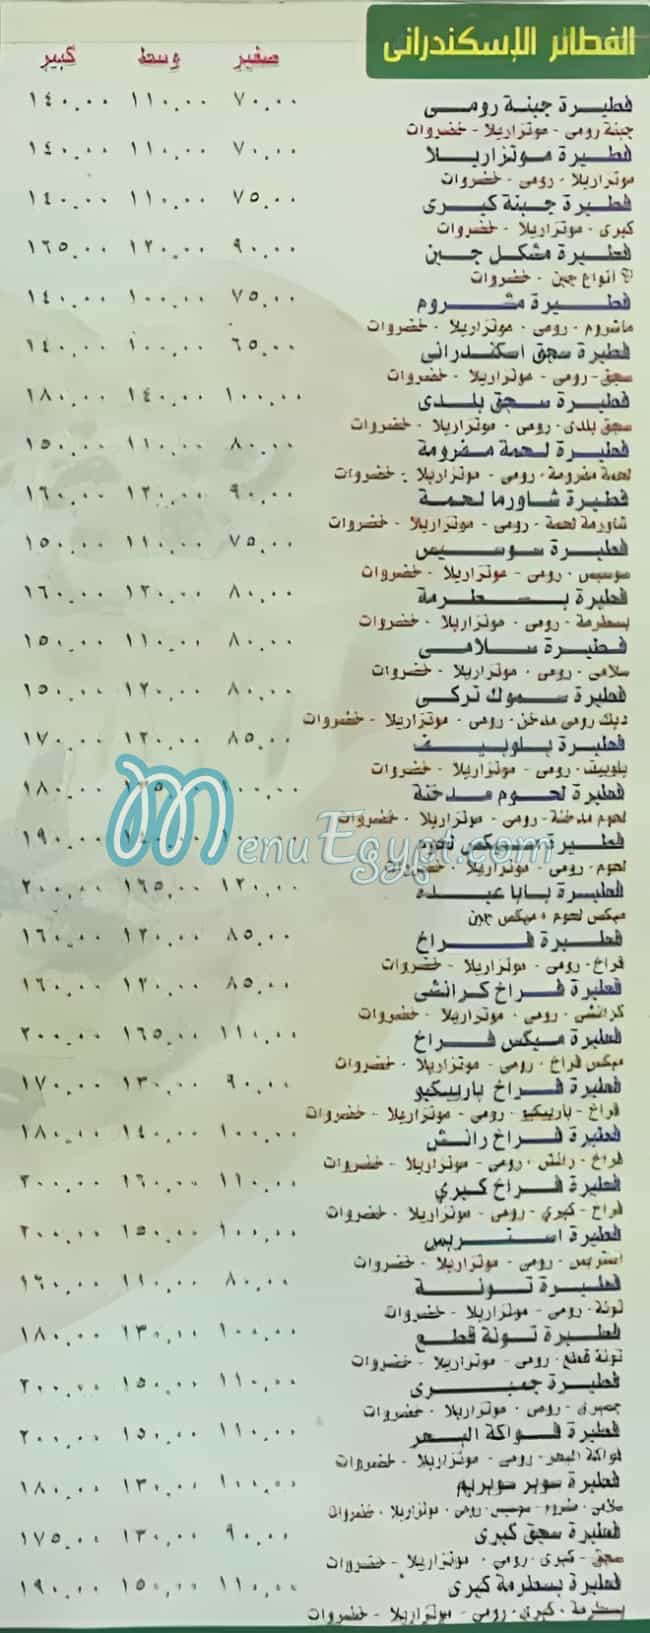 الفطائر الإسكندرانى
صغير وسط كبير
فطيرة جبنة رومى ٧٠,٠٠ ١١٠,٠٠ ١٤٠,٠٠
جبنة رومى - موتزاريلا - خضروات
فطيرة موتزاريلا ٧٠,٠٠ ١١٠,٠٠ ١٤٠,٠٠
موتزاريلا - رومى - خضروات
فطيرة جبنة كيرى ٧٥,٠٠ ١١٠,٠٠ ١٤٠,٠٠
كيرى - موتزاريلا - خضروات
فطيرة مشكل جبن ٩٠,٠٠ ١٢٠,٠٠ ١٦٥,٠٠
أنواع جبن - خضروات
فطيرة مشروم ٧٥,٠٠ ١٠٠,٠٠ ١٤٠,٠٠
ماشروم - رومى - موتزاريلا - خضروات
فطيرة سجق اسكندرانى ٦٥,٠٠ ١٠٠,٠٠ ١٤٠,٠٠
سجق - رومى - موتزاريلا - خضروات
فطيرة سجق بلدى ١٠٠,٠٠ ١٤٠,٠٠ ١٨٠,٠٠
سجق بلدى - رومى - موتزاريلا - خضروات
فطيرة لحمة مفرومة ٨٠,٠٠ ١١٠,٠٠ ١٥٠,٠٠
لحمة مفرومة - رومى - موتزاريلا - خضروات
فطيرة شاورما لحمة ٩٠,٠٠ ١٢٠,٠٠ ١٦٠,٠٠
شاورمة لحمة - رومى - موتزاريلا - خضروات
فطيرة سوسيس ٧٥,٠٠ ١١٠,٠٠ ١٥٠,٠٠
سوسيس - رومى - موتزاريلا - خضروات
فطيرة بسطرمة ٨٠,٠٠ ١٢٠,٠٠ ١٦٠,٠٠
بسطرمة - رومى - موتزاريلا - خضروات
فطيرة سلامى ٨٠,٠٠ ١١٠,٠٠ ١٥٠,٠٠
سلامى - رومى - موتزاريلا - خضروات
فطيرة سموك تركى ٨٠,٠٠ ١٢٠,٠٠ ١٥٠,٠٠
ديك رومى مدخن - رومى - موتزاريلا - خضروات
فطيرة بلوبيف ٨٥,٠٠ ١٢٠,٠٠ ١٧٠,٠٠
بلوبيف - رومى - موتزاريلا - خضروات
فطيرة لحوم مدخنة ١٠٠,٠٠ ١٨٠,٠٠
لحوم مدخنة - رومى - موتزاريلا - خضروات
فطيرة ميكس لحوم ١٤٠,٠٠ ١٩٠,٠٠
لحوم - رومى - موتزاريلا - خضروات
MenuEgypt.com
الفطيرة بابا عبده ١٢٠,٠٠ ١٦٥,٠٠ ٢٠٠,٠٠
ميكس لحوم + ميكس جبن
فطيرة فراخ ٨٥,٠٠ ١٢٠,٠٠ ١٦٠,٠٠
فراخ - رومى - موتزاريلا - خضروات
فطيرة فراخ كرانشى ٨٥,٠٠ ١٢٠,٠٠ ١٦٠,٠٠
كرانشى - رومى - موتزاريلا - خضروات
فطيرة ميكس فراخ ١١٠,٠٠ ١٦٥,٠٠ ٢٠٠,٠٠
ميكس فراخ - رومى - موتزاريلا - خضروات
فطيرة فراخ باربيكيو ٩٠,٠٠ ١٣٠,٠٠ ١٧٠,٠٠
فراخ - باربيكيو - رومى - موتزاريلا - خضروات
فطيرة فراخ رانش ١٠٠,٠٠ ١٤٠,٠٠ ١٨٠,٠٠
فراخ - رانش - رومى - موتزاريلا - خضروات
فطيرة فراخ كيري ١١٠,٠٠ ١٦٠,٠٠ ٢٠٠,٠٠
فراخ - كيري - رومى - موتزاريلا - خضروات
فطيرة استربس ١٠٠,٠٠ ١٥٠,٠٠ ٢٠٠,٠٠
استربس - رومى - موتزاريلا - خضروات
فطيرة تونة ٨٠,٠٠ ١١٠,٠٠ ١٦٠,٠٠
تونة - رومى - موتزاريلا - خضروات
فطيرة تونة قطع ١٠٠,٠٠ ١٣٠,٠٠ ١٨٠,٠٠
تونة قطع - رومى - موتزاريلا - خضروات
فطيرة جمبرى ١١٠,٠٠ ١٥٠,٠٠ ٢٠٠,٠٠
جمبرى - رومى - موتزاريلا - خضروات
فطيرة فواكة البحر ١١٠,٠٠ ١٥٠,٠٠ ٢٠٠,٠٠
فواكة البحر - رومى - موتزاريلا - خضروات
فطيرة سوبر سوبريم ١٠٠,٠٠ ١٣٠,٠٠ ١٨٠,٠٠
سلامى - مشروم - سوسيس - رومى - موتزاريلا - خضروات
فطيرة سجق كيرى ٩٠,٠٠ ١٣٠,٠٠ ١٧٥,٠٠
سجق - كيرى - رومى - موتزاريلا - خضروات
فطيرة بسطرمة كيرى ١١٠,٠٠ ١٥٠,٠٠ ١٩٠,٠٠
بسطرمة - كيرى - رومى - موتزاريلا - خضروات